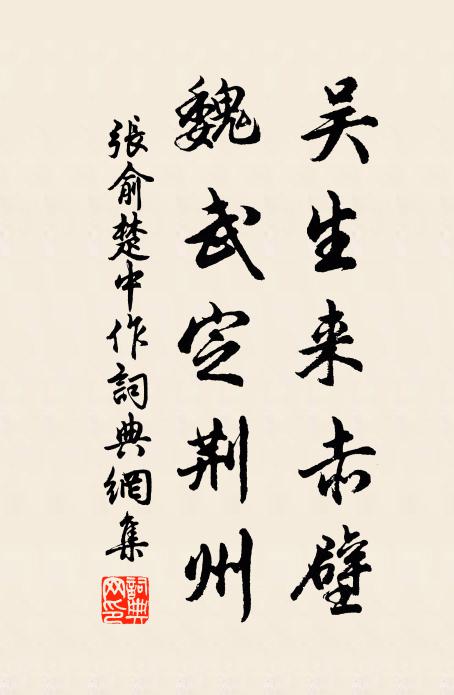 吴生来赤壁
魏武定荆州
張俞楚中作詞典網集